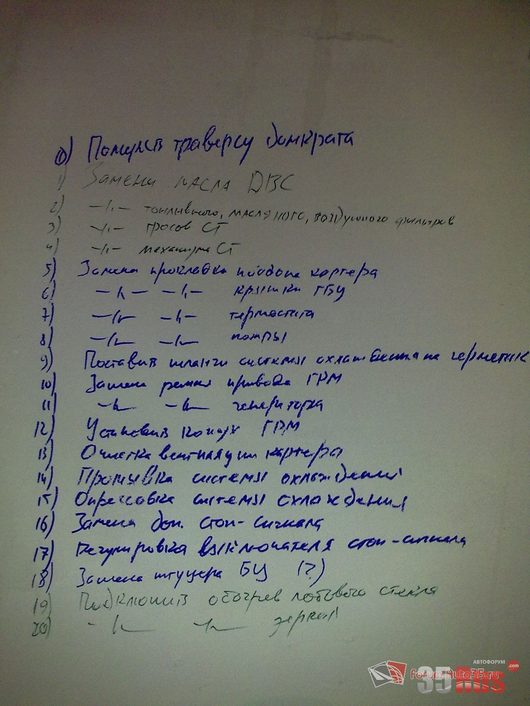 0) Помыть траверсу домкрата
1) Замена масла ДВС
2) -"- топливного, масляного, воздушного фильтров
3) -"- тросов СТ
4) -"- механизма СТ
5) Замена прокладки поддона картера
6 -"- -"- крышки ГБЦ
7 -"- -"- термостата
8 -"- -"- помпы
9) Поставить шланги системы охлаждения на герметик
10) Замена ремня привода ГРМ
11 -"- -"- генератора
12 Установить кожух ГРМ
13 Очистка вентиляции картера
14) Промывка системы охлаждения
15) Опрессовка системы охлаждения
16) Замена доп. стоп-сигнала
17) Регулировка выключателя стоп-сигнала
18) Замена штуцера БЦ (?)
19 Подключить обогрев лобового стекла
20) -"- -"- зеркал
АВТОФОРУМ
forum.auto35.ru